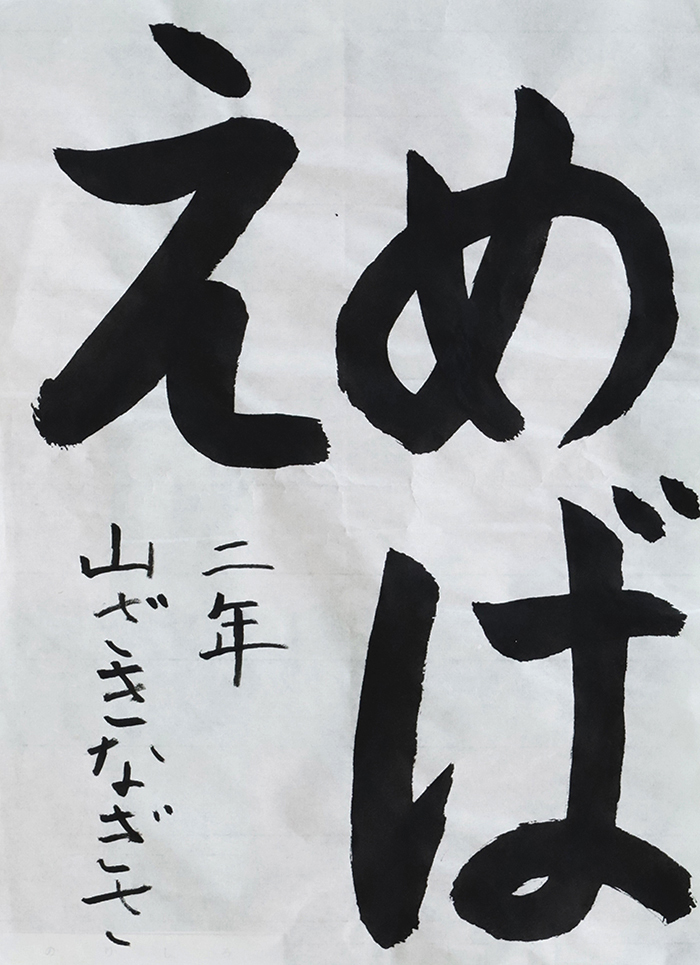 めば
え
二年
山ざきなぎさ